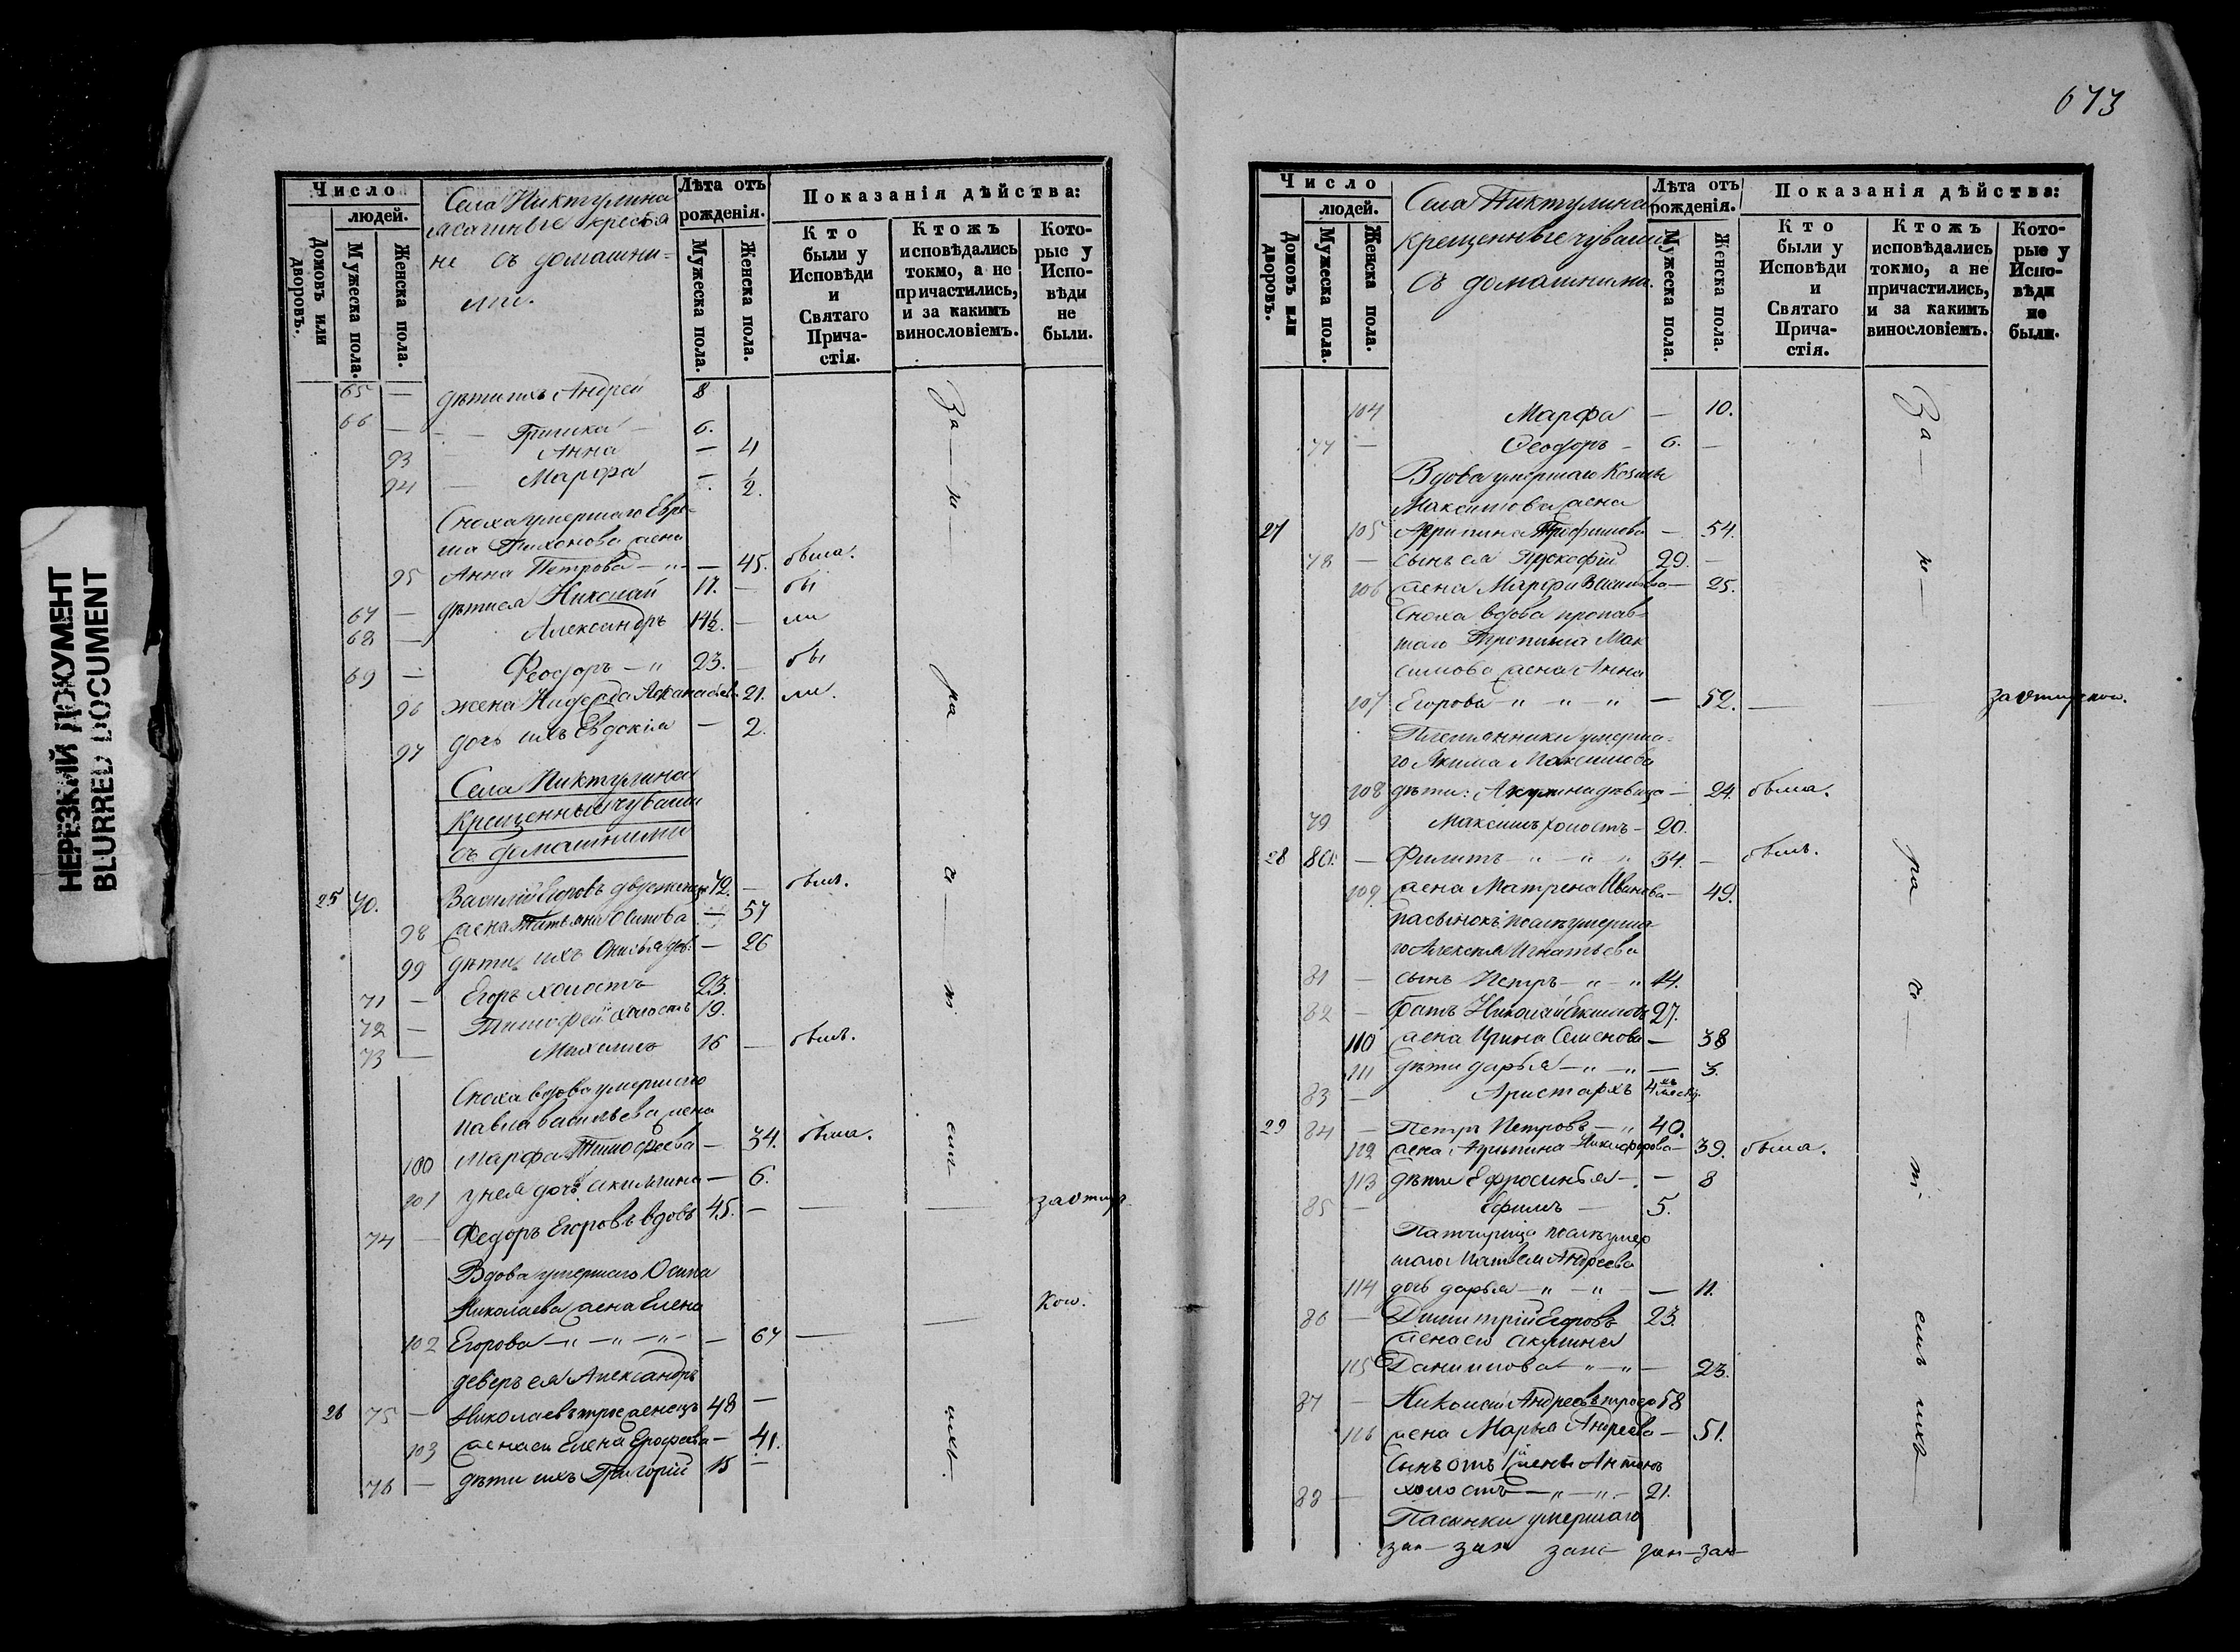 НЕРЕЗКИЙ ДОКУМЕНТ
BLURRED DOCUMENT
Число
людей.
Домовъ или дворовъ.
Мужеска пола.
Женска пола.
Села Никтулина
ясашные крестья
не съ домашни-
ми.
Лѣта отъ
рожденія.
Мужеска пола.
Женска пола.
Показанія дѣйства:
Кто были у Исповѣди и Святаго Прича-стія.
Ктожъ исповѣдались токмо, а не причастились, и за какимъ винословіемъ.
Кото-рые у Испо-вѣди не были.
65 — дѣти ихъ Андрей 8
66 — Гришка — 6.
93 Анна — 4
94 — Марфа — 1/2.
Сноха умершаго Евре-
ма Тихонова жена
95 Анна Петрова — " — — 45. была.
67 — дѣти ея Николай 17. — бы
68 — Александръ 14½. — ли
69 — Феодоръ — " 23. — бы
96 жена Афанасьева 21. ли.
97 дочь ихъ Евдокія — 2.
Села Никтулина
крещенные чуваши
съ домашними
25 70. Василій Егоровъ двоеженецъ 72. — былъ.
98 жена Татьяна Осипова — 57
99 дѣти ихъ дев: — 26
71 — Егоръ холостъ 23.
72 — Тимофей холостъ 19.
73 — 16 — былъ.
Сноха вдова умершаго
Павла Васильева жена
100 Марфа Тимофеева — 34. была.
101 у нея дочь Акилина — 6.
74 — Федоръ Егоровъ вдовъ 45. — — — за отлуч
Вдова умершаго Осипа
Николаева жена Елена
102 Егорова — " — " — " — — 67 — — кою.
деверь ея Александръ
26 75 — Николаевъ троеженецъ 48 —
103 жена ея Елена Ерофеева — 41.
76 — дѣти ихъ Григорій 15 —
За — м — ра — с — т — емъ — ихъ.
673
Число
людей.
Домовъ или дворовъ.
Мужеска пола.
Женска пола.
Села Никтулина
крещенные чуваши
съ домашними.
Лѣта отъ
рожденія.
Мужеска пола.
Женска пола.
Показанія дѣйства:
Кто были у Исповѣди и Святаго Прича-стія.
Ктожъ исповѣдались токмо, а не причастились, и за какимъ винословіемъ.
Кото-рые у Испо-вѣди не были.
104 Марфа — 10.
77 — Феодоръ — 6. —
Вдова умершаго Козмы
Максимова жена
27 105 Агрипина Трофимова — 54.
78 — сынъ ея Прокофій 29. —
106 жена Марфа — 25.
Сноха вдова пропав-
шаго Трофима Мак
симова жена Анна
107 Егорова — " — " — " — 52. — за отлучкою.
Племянники умерша-
го Якима Максимова
108 дѣти: Акулина девица — 24. была.
79 Максимъ холостъ — 20.
28 80. — Филипъ — " — " — " 34. — былъ.
109 жена Матрена Иванова — 49.
пасынокъ умерша-
го Алексея Игнатьева
81 — сынъ Петръ — " — " 14.
82 — братъ Николай 27.
110 жена Ирина Семенова — 38
111 дѣти Дарья — " — " — 3.
83 — Аристархъ 4хъ месяц.
29 84 — Петръ Петровъ — " 40.
112 жена Агрипина Никифорова — 39. была.
113 дѣти Ефросинья — — 8
85 — Ефимъ — 5.
Патчерица умер
шаго Матвея Андреева
114 дочь Дарья — " — " — — 11.
86 — Димитрій Егоровъ 23.
жена его Акулина
115 Данилова — " — " — 23.
87 — Николай Андреевъ 58
116 жена Марья Андреева — 51.
Сынъ отъ 1й жены Антонъ
88 — холостъ — " — " — 21.
Пасынки умершаго
За — м — ра — с — т — емъ ихъ —